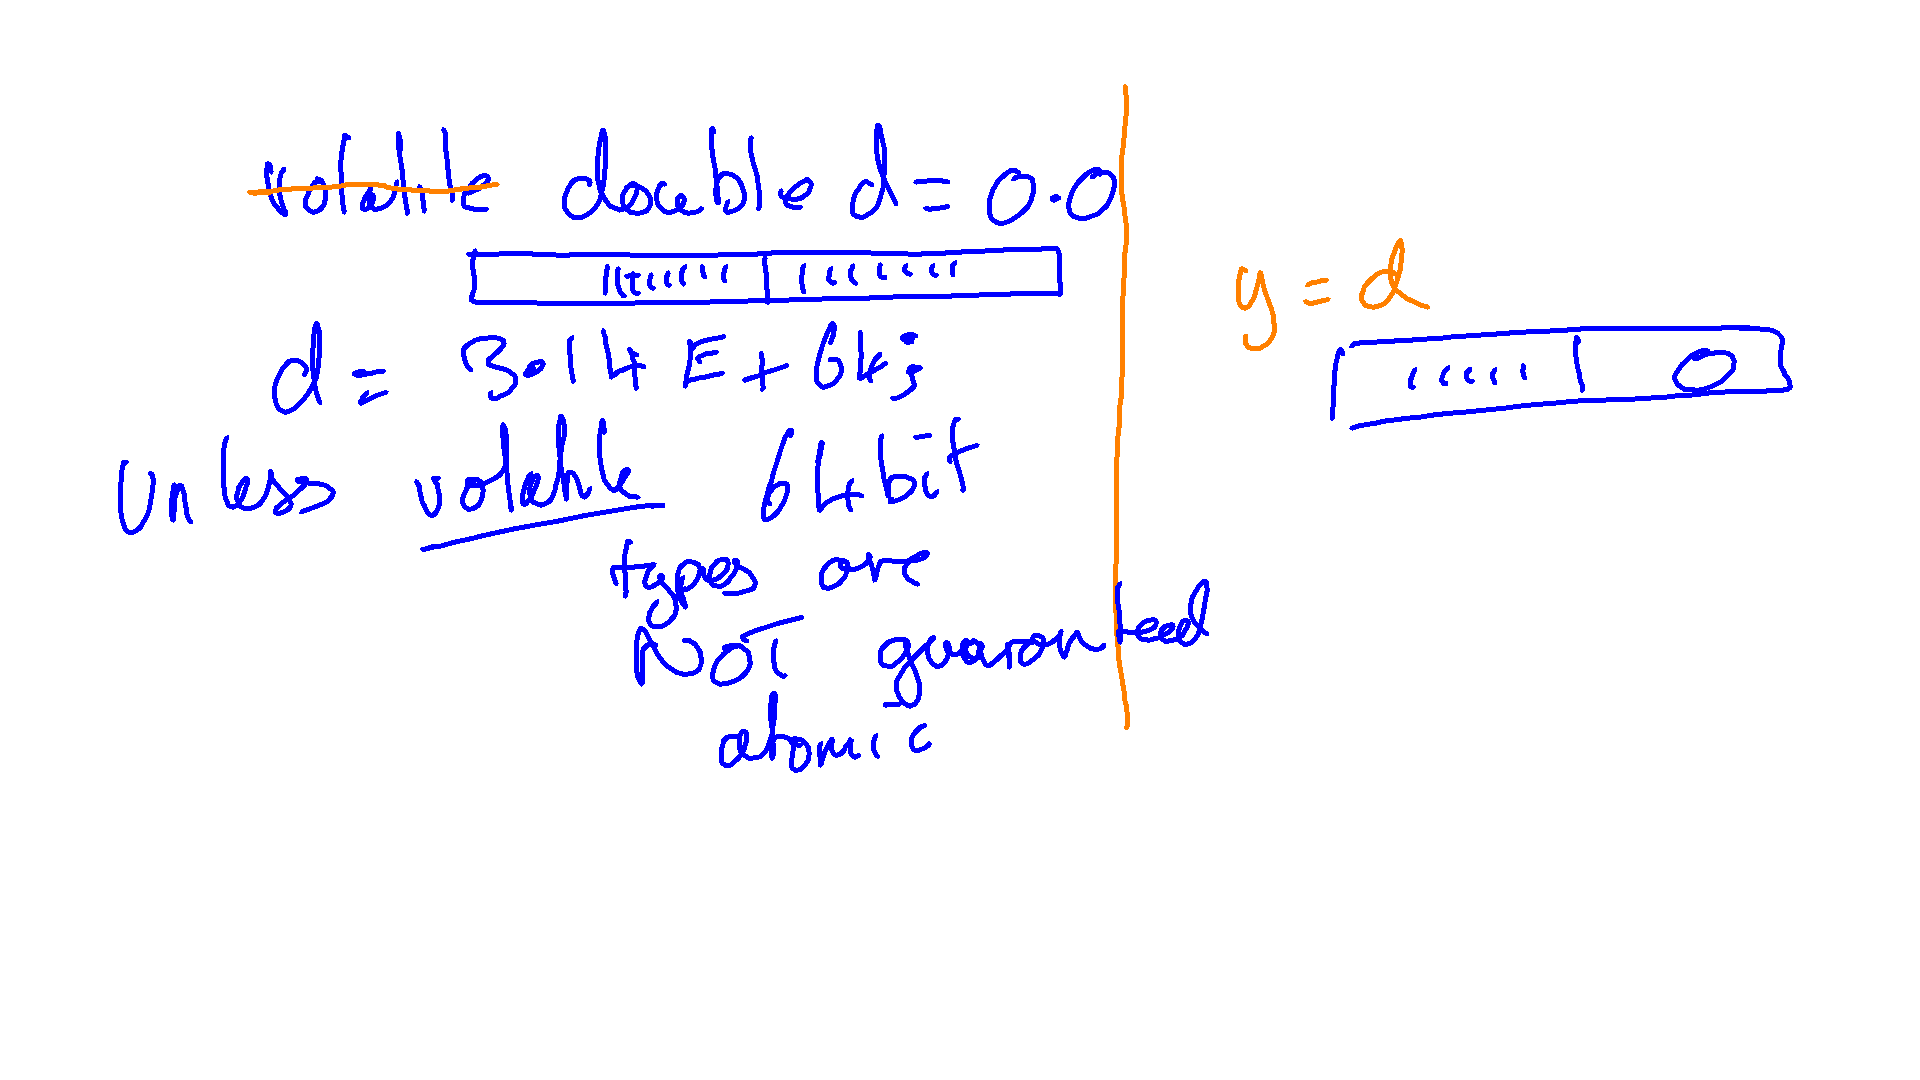 volatile double d = 0.0
d = 3.14 E + 64;
y = d
0
Unless volatile 64bit
types are
NOT guaranteed
atomic